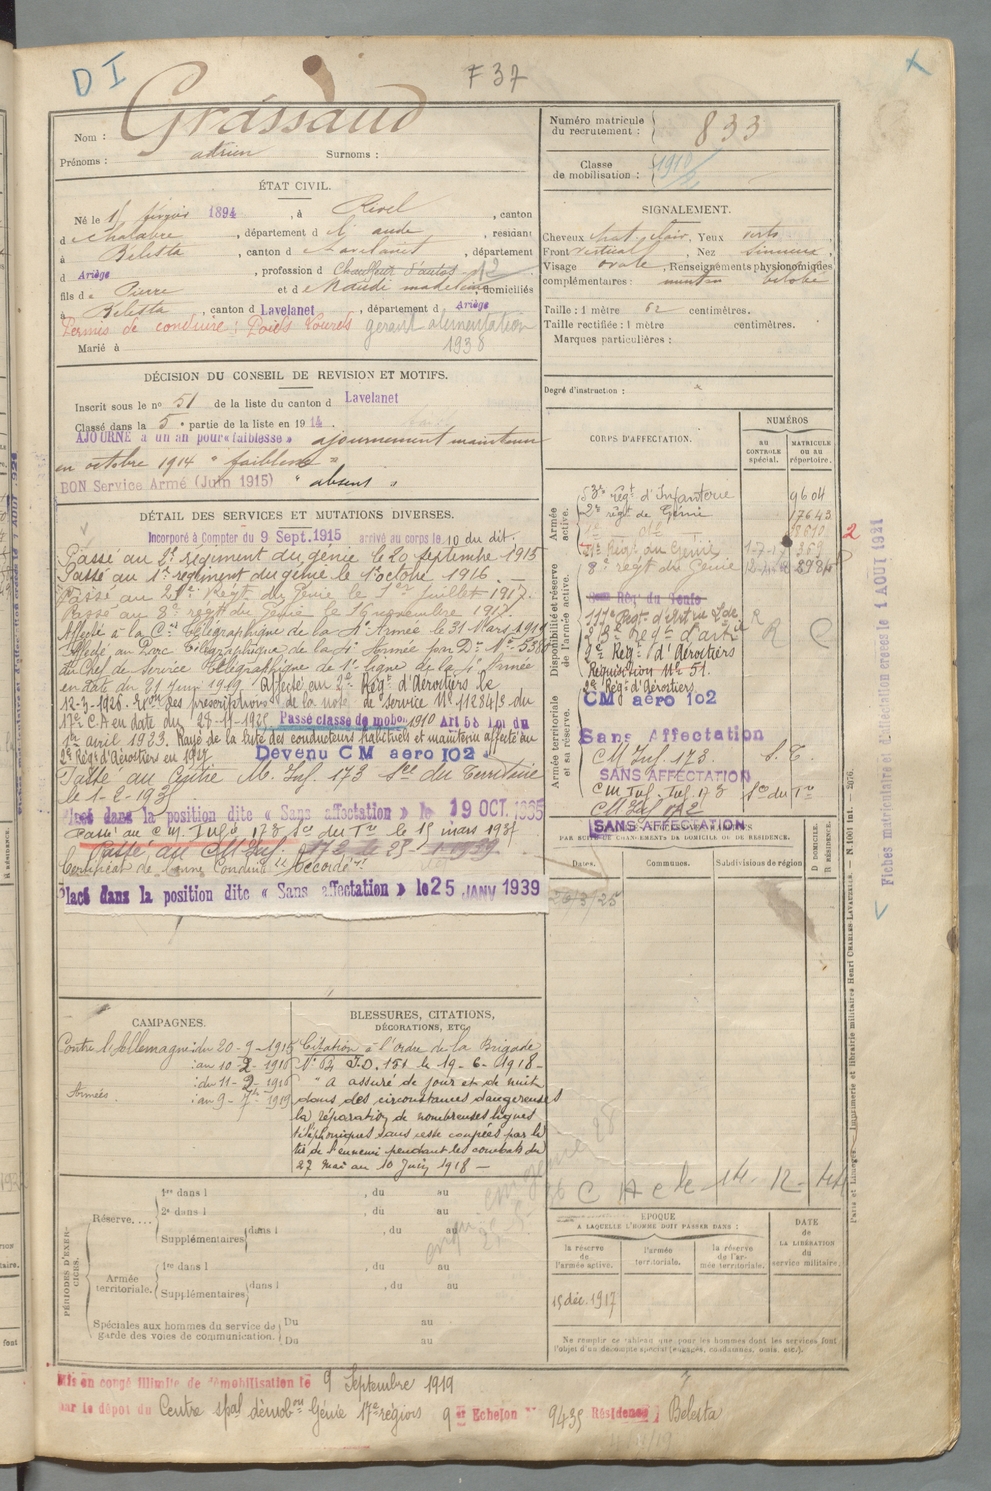 D I
F 37
Nom : Grassaud
Prénoms : Adrien Surnoms :
Numéro matricule du recrutement : 833
Classe de mobilisation : 1910/2
ÉTAT CIVIL.
Né le 15 février 1894, à Rivel, canton
de Chalabre, département de l'Aude, résidant
à Bélesta, canton de Lavelanet, département
d Ariège, profession de Chauffeur d'autos
fils de Pierre et de Naudi Madeleine, domiciliés
à Bélesta, canton d Lavelanet, département d Ariège
Permis de conduire : Poids Lourds gérant alimentation
1938
Marié à
SIGNALEMENT.
Cheveux chat. clair, Yeux verts
Front vertical, Nez sinueux,
Visage ovale, Renseignements physionomiques
complémentaires : menton bilobé
Taille : 1 mètre 62 centimètres.
Taille rectifiée : 1 mètre centimètres.
Marques particulières :
Degré d'instruction :
DÉCISION DU CONSEIL DE REVISION ET MOTIFS.
Inscrit sous le no 51 de la liste du canton d Lavelanet
Classé dans la 5e partie de la liste en 1914.
AJOURNÉ à un an pour « faiblesse » ajournement maintenu
en octobre 1914 " faiblesse "
BON Service Armé (Juin 1915) " absent "
DÉTAIL DES SERVICES ET MUTATIONS DIVERSES.
Incorporé à Compter du 9 Sept. 1915 arrivé au corps le 10 du dit.
Passé au 2e régiment du génie le 20 septembre 1915
Passé au 1er régiment du génie le 1er octobre 1916.
Passé au 21e Régt du Génie le 1er Juillet 1917.
Passé au 8e régt du Génie le 16 novembre 1917.
Affecté à la Cie Télégraphique de la 4e Armée le 31 Mars 1919
Affecté au Parc Télégraphique de la 4e Armée par Dn No 5380
du Chef de Service Télégraphique de 1e ligne de la 4e Armée
en date du 21 Juin 1919. Affecté au 2e Régt d'Aérostiers le
12-3-1926. suivt les prescriptions de la note de service No 11284/3 du
17e C.A en date du 28-11-1925 Passé classe de mobon 1910 Art 58 Loi du
1er avril 1923. Rayé de la liste des conducteurs habituels et maintenu affecté au
2e Régt d'Aérostiers en 1927 Devenu C M aero 102
Passé au Centre M. Inf. 173 Sce du Territoire
le 1-2-193
Placé dans la position dite « Sans affectation » le 19 OCT. 1935
Passé au C M. Infie 173 Sce du Tre le 15 mars 1937
Passé au C M Inf 172 le 25-1-1939
Certificat de bonne Conduite " Accordé "
Placé dans la position dite « Sans affectation » le 25 JANV 1939
CORPS D'AFFECTATION.
NUMÉROS
au CONTRÔLE spécial.
MATRICULE ou au répertoire.
Armée active.
53e Régt d'Infanterie 9604
2e régt de Génie 17643
21e Régt du Génie 1-7-17
8e régt du Génie
Disponibilité et réserve de l'armée active.
8e Rég du Génie
2e Régt d'Aérostiers
Réquisition No 51.
2e Régt d'Aérostiers
Armée territoriale et sa réserve.
CM aéro 102
Sans Affectation
C M Inf. 173 S. T.
SANS AFFECTATION
C M Inf. 173 Sce du Tre
C M Inf 172
SANS AFFECTATION
PAR SUITE DE CHANGEMENTS DE DOMICILE OU DE RÉSIDENCE.
Dates. Communes. Subdivisions de région D DOMICILE. R RÉSIDENCE.
26/3/25
CAMPAGNES.
Contre l'Allemagne : du 20-9-1915
au 10-2-1916
Armées : du 11-2-1916
au 9-7bre 1919
BLESSURES, CITATIONS, DÉCORATIONS, ETC.
Citation à l'ordre de la Brigade
No 64 I.D. 151 le 19-6-1918-
" A assuré de jour et de nuit
dans des circonstances dangereuses
la réparation de nombreuses lignes
téléphoniques sans cesse coupées par le
tir de l'ennemi pendant les combats du
27 Mai au 10 Juin 1918 —
PÉRIODES D'EXERCICES.
Réserve....
1re dans l , du au
2e dans l , du au
Supplémentaires dans l , du au
Armée territoriale.
1re dans l , du au
Supplémentaires dans l , du au
Spéciales aux hommes du service de garde des voies de communication.
Du au
Du au
C A C le 14-12-44
ÉPOQUE
A LAQUELLE L'HOMME DOIT PASSER DANS :
la réserve de l'armée active.
l'armée territoriale.
la réserve de l'armée territoriale.
DATE DE LA LIBÉRATION du service militaire.
15 déc. 1917
Ne remplir ce tableau que pour les hommes dont les services font
l'objet d'un décompte spécial (engagés, condamnés, omis, etc.).
Mis en congé illimité de démobilisation le 9 Septembre 1919
par le dépôt du Centre spal démobon Génie 17e région 9e Echelon No 9435 Résidence Belesta
Fiches matriculaire et d'affectation créées le 1 AOUT 1921
Paris et Limoges. — Imprimerie et librairie militaires Henri CHARLES-LAVAUZELLE.